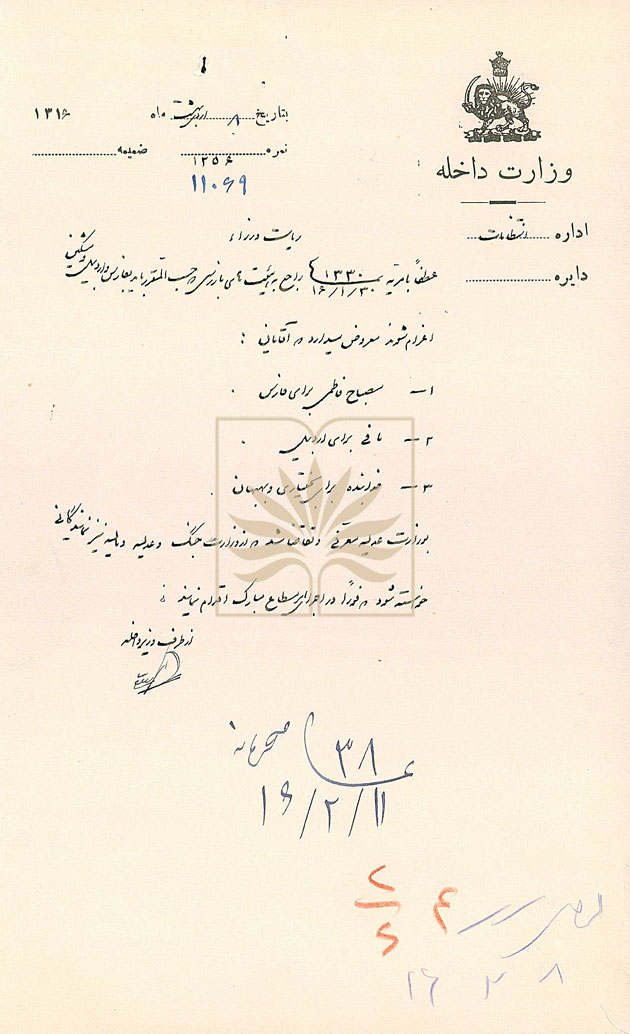 وزارت داخله
اداره انتظامات
دایره
بتاریخ ۸ اردیبهشت ماه ۱۳۱۶
نمره ۱۲۵۶ ضمیمه
۱۱۰۶۹
ریاست وزراء
عطفاً بامریه نمره ۱۳۳۰ ۱۶/۱/۳۰ راجع به هیئت های بازرسی که حسب المقرر باید بفارس و اردبیل و مشکین
اعزام شوند معروض میدارد که آقایانی :
۱ــ مصباح فاطمی برای فارس .
۲ــ نافی برای اردبیل .
۳ــ خدابنده برای بختیاری و بهبهان .
بوزارت عدلیه معرفی و تقاضا شد که از وزارت جنگ و عدلیه و مالیه نیز نمایندگانی
خواسته شود که فوراً در اجرای امر مطاع مبارک اقدام نمایند .
از طرف وزیر داخله
نمره ۳۸ محرمانه
۱۶/۲/۱۱
۲
۶
۴
۱۶ ۲ ۸